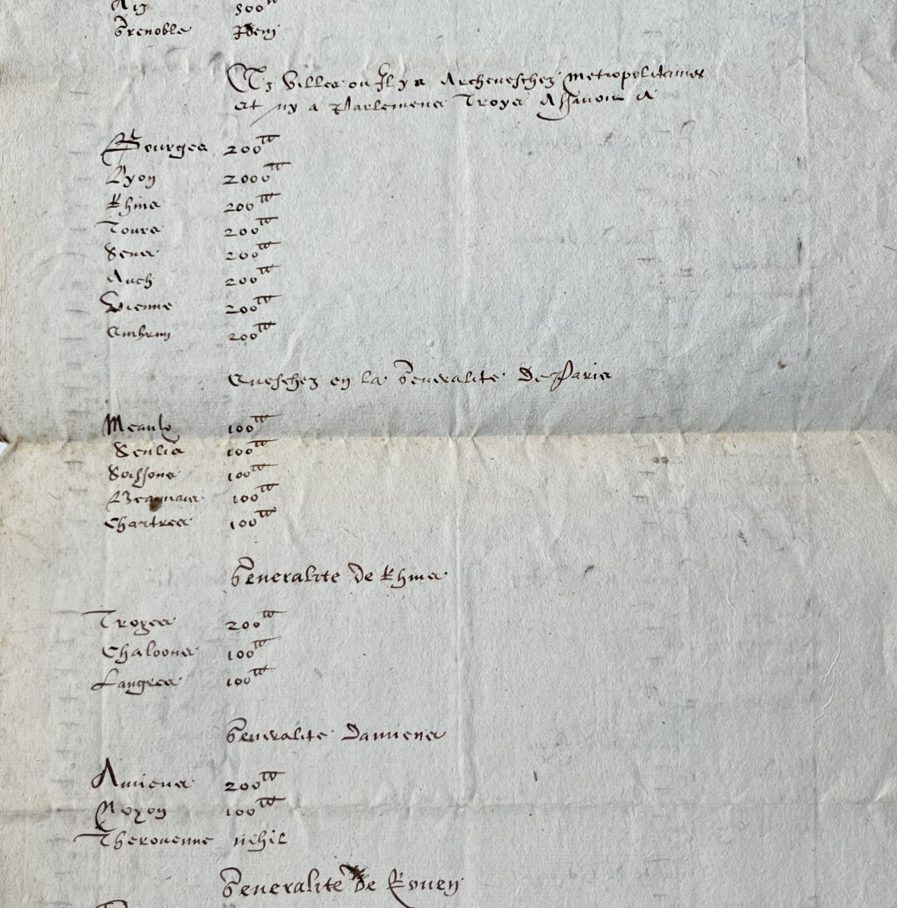 Aix 500tt
Grenoble Idem
Es Villes ou Il y a Archeueschez metropolitaines
et ny a Parlemens Troys Assauoir A
Bourges 200tt
Lyon 2000tt
Rhins 200tt
Tours 200tt
Sens 200tt
Auch 200tt
Vienne 200tt
Embrun 200tt
Eueschez en la Generalite De Paris
Meaulx 100tt
Senlis 100tt
Soissons 100tt
Beauuais 100tt
Chartres 100tt
Generalite De Rhins
Troyes 200tt
Chaloons 100tt
Langres 100tt
Generalite Damiens
Amiens 200tt
Noyon 100tt
Therouenne nihil
Generalite de Rouen